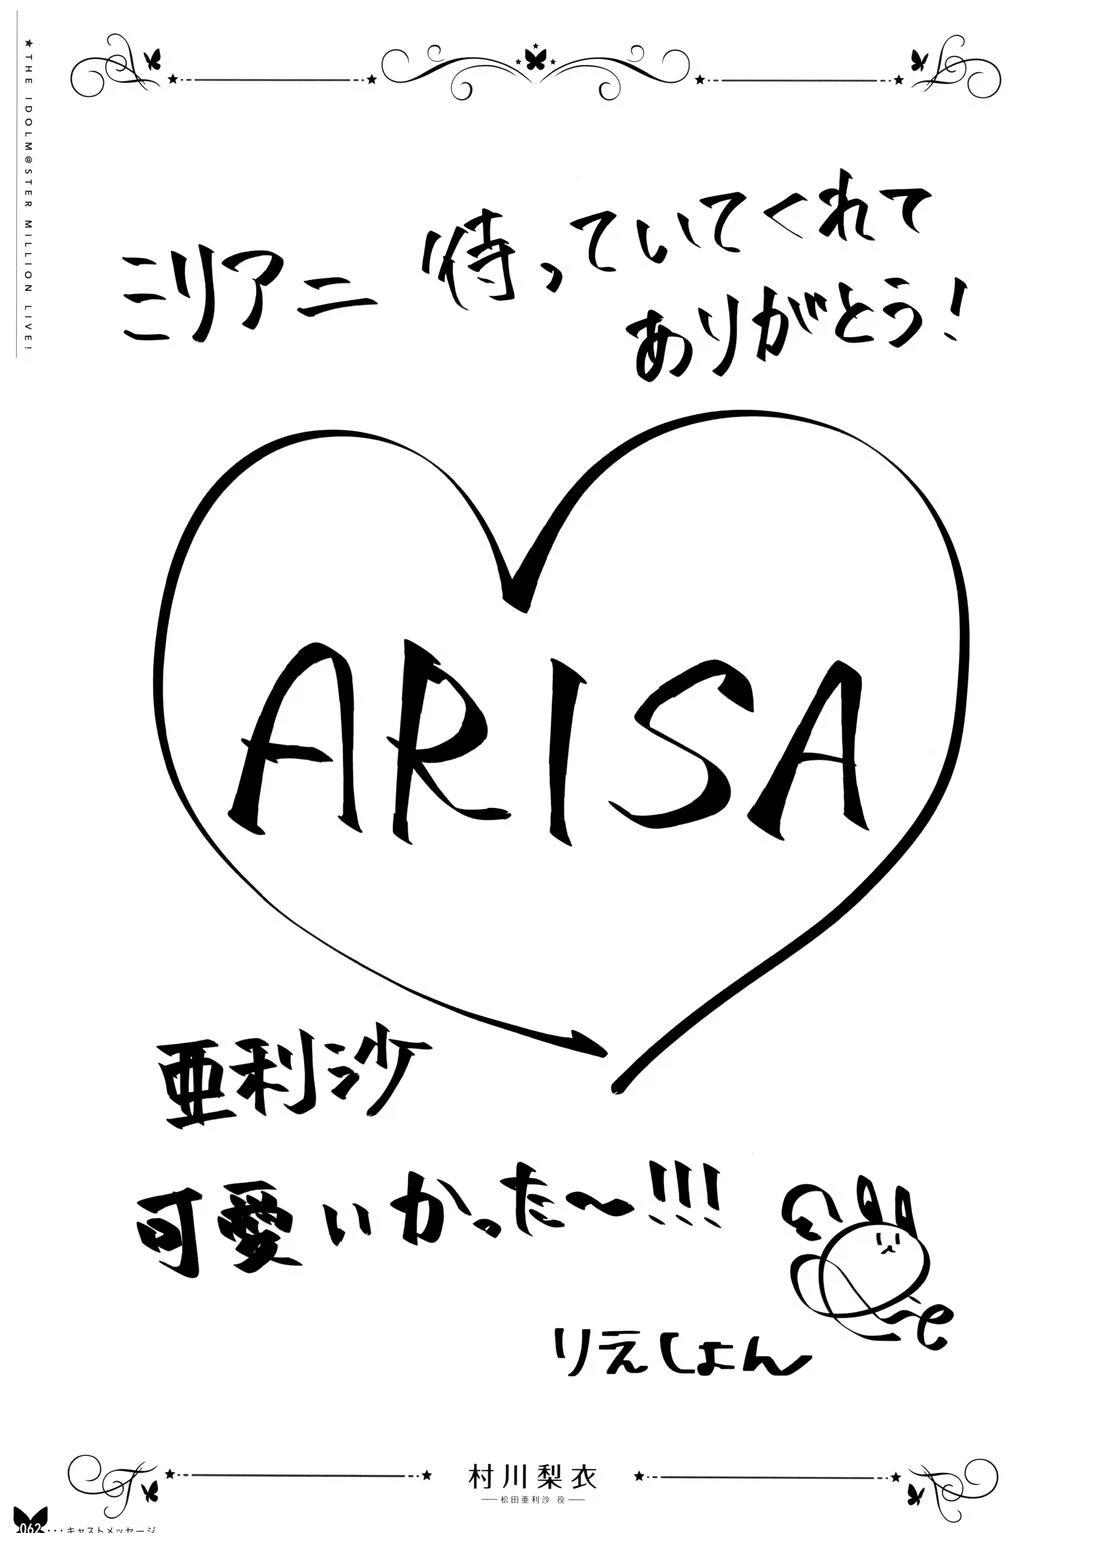 ★THE IDOLM@STER MILLION LIVE!
ミリアニ 待っていてくれて
ありがとう!
ARISA
亜利沙
可愛いかった〜!!!
りえしょん
村川梨衣
松田亜利沙 役
062・・・キャストメッセージ